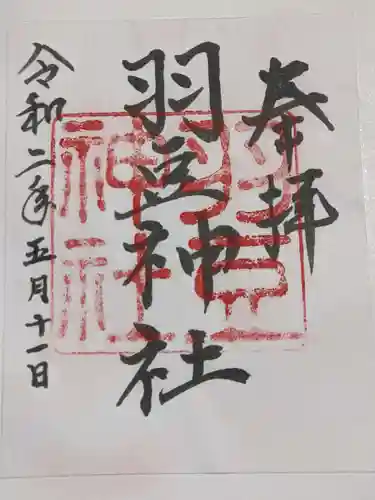 奉拝
羽豆神社
令和二年五月十一日